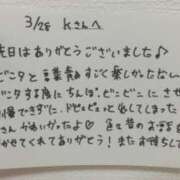 3/28 Kさんへ
先日はありがとうございました♪
ピンタと言葉責 すごく楽しかたなぁ
ビンタする度に ちんぽ、ビこビこにさせ
慢できずに、ドピュピュっと出してしまった
さん かわいかったよ♡ 色々昔のお話も
かせてくれてありがとう! またお待ちして